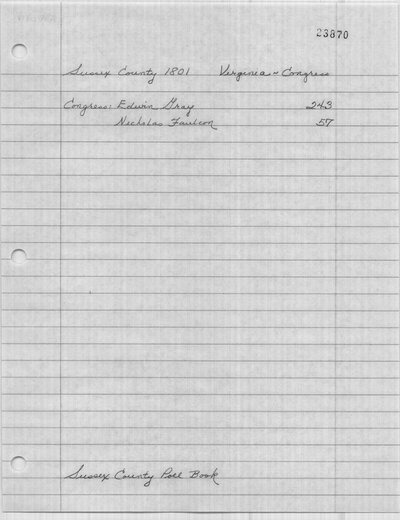 23870
Sussex County 1801 Virginia - Congress
Congress: Edwin Gray 243
Nicholas Faulcon 57
Sussex County Poll Book